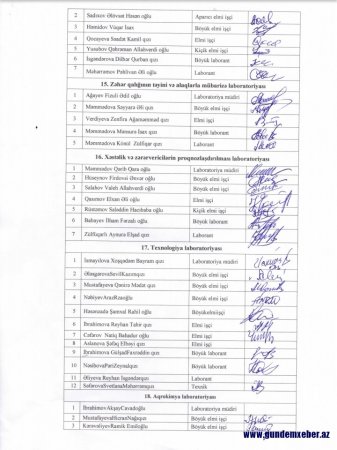 2 Sadıxov Əlövsət Həsən oğlu Aparıcı elmi işçi
3 Həmidov Vüqar İsax Böyük elmi işçi
4 Qocayeva Saadət Kamil qızı Elmi işçi
5 Yusubov Qəhrəman Allahverdi oğlu Kiçik elmi işçi
6 İsgəndərova Dilbər Qurban qızı Böyük laborant
7 Məhərrəmov Pəhlivan Əli oğlu Laborant
15. Zəhər qalığının təyini və alaqlarla mübarizə laboratoriyası
1 Ağayev Fizuli Ədil oğlu Laboratoriya müdiri
2 Məmmədova Səyyarə Əli qızı Böyük elmi işçi
3 Verdiyeva Zenfira Ağaməmməd qızı Elmi işçi
4 Məmmədova Mənsurə İsax qızı Böyük laborant
5 Məmmədova Könül Zülfüqar qızı Laborant
16. Xəstəlik və zərərvericilərin proqnozlaşdırılması laboratoriyası
1 Məmmədov Qərib Qara oğlu Laboratoriya müdiri
2 Hüseynov Firdovsi Ənvər oğlu Böyük elmi işçi
3 Salahov Valeh Allahverdi oğlu Böyük elmi işçi
4 Qasımov Elxan Əli oğlu Elmi işçi
5 Rüstəmov Sələddin Hacıbaba oğlu Kiçik elmi işçi
6 Babayev İlham Fərzalı oğlu Böyük laborant
7 Zülfüqarlı Aynurə Elşad qızı Laborant
17. Texnologiya laboratoriyası
1 İsmayılova Xoşqədəm Bayram qızı Laboratoriya müdiri
2 ƏləsgərovaSevilKərimqızı Böyük elmi işçi
3 Mustafayeva Qənirə Mədət qızı Böyük elmi işçi
4 NəbiyevArazRzaoğlu Böyük elmi işçi
5 Həsənzadə Şəmsal Rəhil oğlu Böyükelmiişçi
6 İbrahimova Reyhan Tahir qızı Elmi işçi
7 Cəfərov Natiq Bahadur oğlu Elmi işçi
8 Aslanova Şəfəq Elbəyi qızı Elmi işçi
9 İbrahimova GülşədFəxrəddin qızı Böyük laborant
10 NəsibovaPəriZeynalqızı Böyük laborant
11 Əliyeva Reyhan İsgəndərqızı Laborant
12 SəfərovaSvetlanaMəhərrəmqızı Texnik
18. Aqrokimya laboratoriyası
1 İbrahimovAkşayCavadoğlu Laboratoriya müdiri
2 MustafayevaHicranNağıqızı Böyük elmi işçi
3 KərəvəliyevRamik Emiloğlu Böyük elmi işçi
www.gundemxeber.az